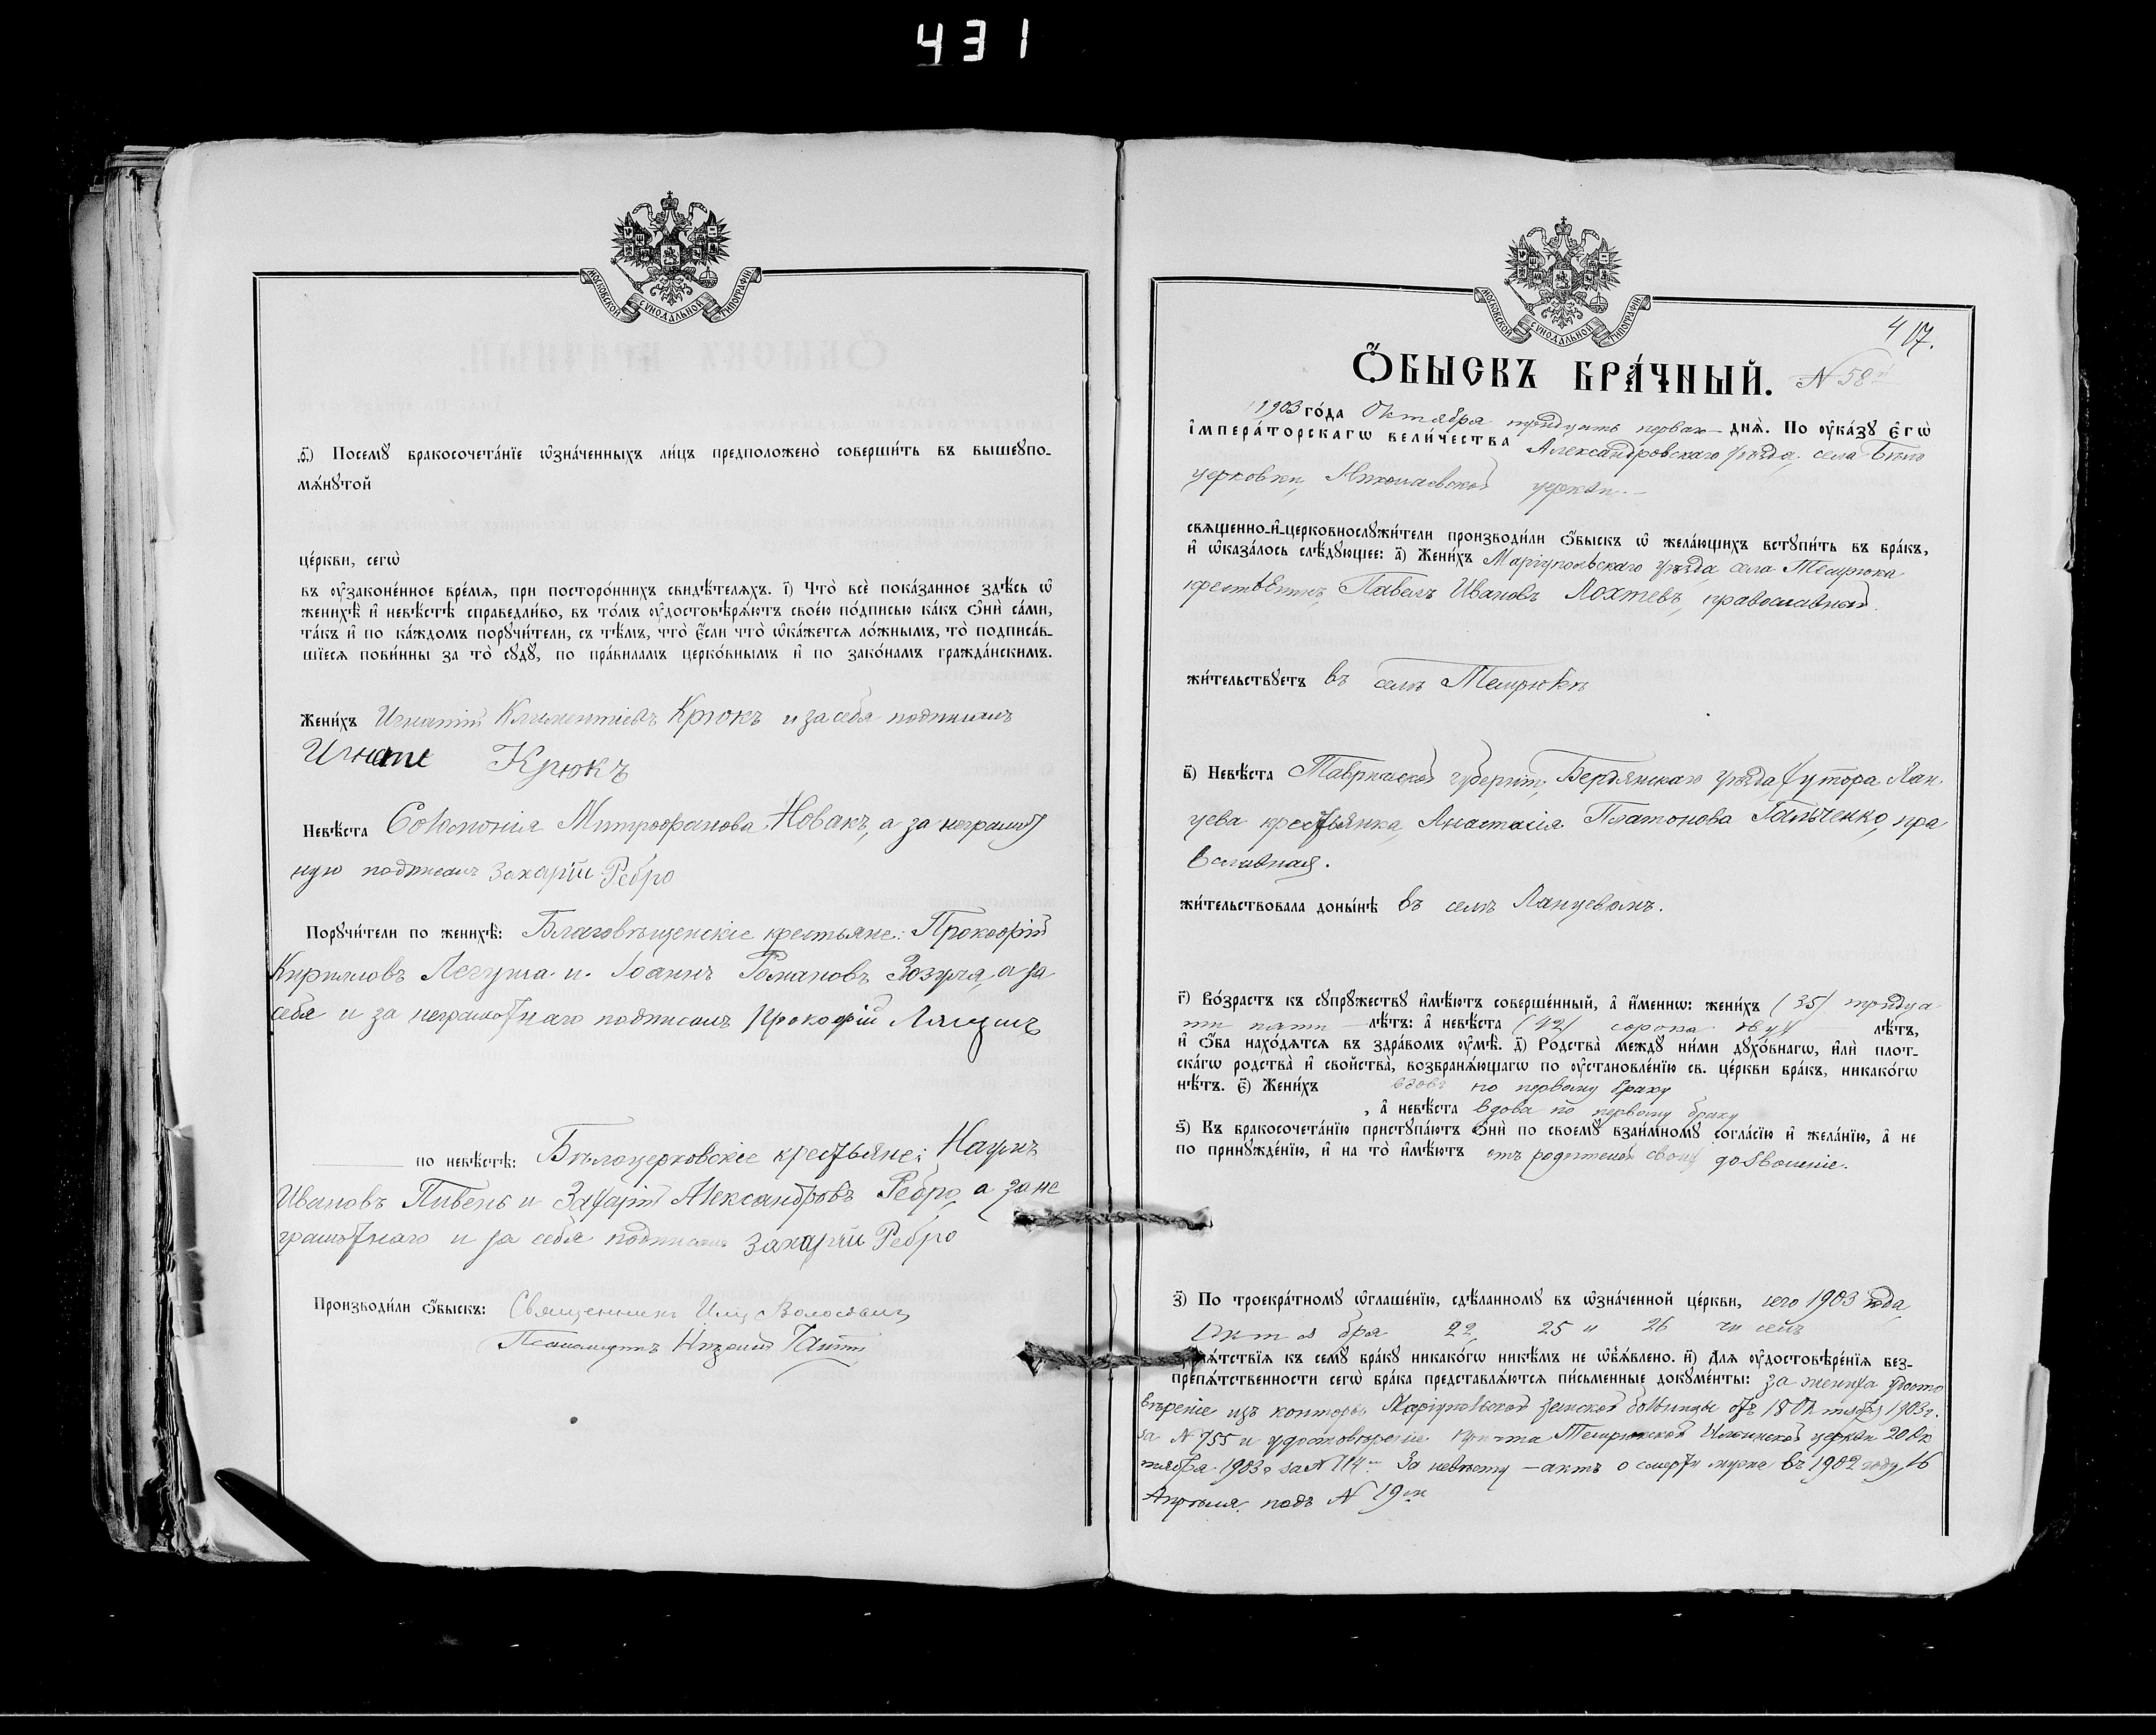 431
МОСКОВСКОЙ СУНОДАЛЬНОЙ ТИПОГРАФІИ
д҃і) Посемꙋ бракосочета́нїе ѡ҆зна́ченныхъ ли́цъ предположено̀ соверши́ть въ вышеꙋпо-
мѧ́нꙋтой
це́ркви, сегѡ̀
въ ᲂу҆законе́нное вре́мѧ, при посторо́ннихъ свидѣ́телѧхъ. і҃) Что̀ всѐ пока́занное здѣ́сь ѡ҆
женихѣ̀ и҆ невѣ́стѣ справедли́во, въ то́мъ ᲂу҆достовѣрѧ́ютъ свое́ю по́дписью ка́къ ѻ҆нѝ са́ми,
та́къ и҆ по ка́ждомъ порꙋчи́тели, съ тѣ́мъ, что̀ є҆́сли что̀ ѡ҆ка́жетсѧ ло́жнымъ, то̀ подписа́в-
шїесѧ пови́нны за то̀ сꙋдꙋ̀, по пра́виламъ церко́внымъ и҆ по зако́намъ гражда́нскимъ.
Жени́хъ Игнатій Климентіевъ Крюкъ и за себя подписалъ
Игнатъ Крюкъ
Невѣ́ста Соломонія Митрофанова Новакъ, а за неграмот
ную подписалъ Захарій Ребро
Порꙋчи́тели по женихѣ̀: Благовѣщенскіе крестьяне: Прокофій
Кириловъ и Іоаннъ Романовъ Зозуля, а за
себя и за неграмотнаго подписалъ Прокофій
по невѣ́стѣ: Бѣлоцерковскіе крестьяне: Наумъ
Ивановъ Пивень и Захарій Александровъ Ребро, а за не
грамотнаго и за себя подписалъ Захарій Ребро
Производи́ли ѻ҆́быскъ: Священникъ
Псаломщикъ
МОСКОВСКОЙ СУНОДАЛЬНОЙ ТИПОГРАФІИ
417.
Ѻ҆́БЫСКЪ БРА́ЧНЫЙ. N 58й
1903 го́да Октября тридцать перваго днѧ̀. По ᲂу҆ка́зꙋ є҆гѡ̀
і҆мпера́торскагѡ вели́чества Александровскаго уѣзда, села Бѣло
церковки, Николаевской церкви.—
свѧщенно-и҆-церковнослꙋжи́тели производи́ли ѻ҆́быскъ ѡ҆ жела́ющихъ встꙋпи́ть въ бра́къ,
и҆ ѡ҆каза́лось слѣ́дꙋющее: а҃) Жени́хъ Маріупольскаго уѣзда, села Темрюка
крестьянинъ, Павелъ Ивановъ Лохтевъ, православный.
жи́тельствꙋетъ въ селѣ Темрюкѣ
в҃) Невѣ́ста Таврической губерніи, Бердянскаго уѣзда хутора Лан
цева крестьянка, Анастасія Платонова Гальченко, пра
вославная.
жи́тельствовала доны́нѣ въ селѣ Ланцевомъ.
г҃) Во́зрастъ къ сꙋпрꙋ́жествꙋ и҆мѣ́ютъ соверше́нный, а҆ и҆́меннѡ: жени́хъ (35) тридца
ти пяти лѣ́тъ: а҆ невѣ́ста (42) сорока двухъ лѣ́тъ,
и҆ ѻ҆́ба нахо́дѧтсѧ въ здра́вомъ ᲂу҆мѣ̀. д҃) Родства̀ междꙋ̀ ни́ми дꙋхо́внагѡ, и҆лѝ плот-
ска́гѡ родства̀ и҆ сво́йства̀, возбранѧ́ющагѡ по ᲂу҆становле́нїю св. це́ркви бра́къ, никако́гѡ
нѣ́тъ. є҃) Жени́хъ вдовъ по первому браку
, а҆ невѣ́ста вдова по первому браку
ѕ҃) Къ бракосочета́нїю пристꙋпа́ютъ ѻ҆нѝ по своемꙋ̀ взаи́мномꙋ согла́сїю и҆ жела́нїю, а҆ не
по принꙋжде́нїю, и҆ на то̀ и҆мѣ́ютъ отъ родителей своихъ дозволеніе.
з҃) По троекра́тномꙋ ѡ҆глаше́нїю, сдѣ́ланномꙋ въ ѡ҆зна́ченной це́ркви, сего 1903 года,
Октября 22, 25 и 26 чиселъ
препѧ́тствїѧ къ семꙋ̀ бра́кꙋ никако́гѡ никѣ́мъ не ѡ҆б̾ѧ́влено. и҃) Длѧ ᲂу҆достовѣре́нїѧ без-
препѧ́тственности сегѡ̀ бра́ка представлѧ́ютсѧ пи́сьменные докꙋме́нты: за жениха удосто
вѣреніе изъ конторы Маріупольской земской больницы отъ 18 Октября 1903 г.
за N 755 и удостовѣреніе причта Темрюкской Ильинской церкви 20 Ок
тября 1903 г за N 114. За невѣсту — актъ о смерти мужа въ 1902 году, 16
Апрѣля подъ N 19м